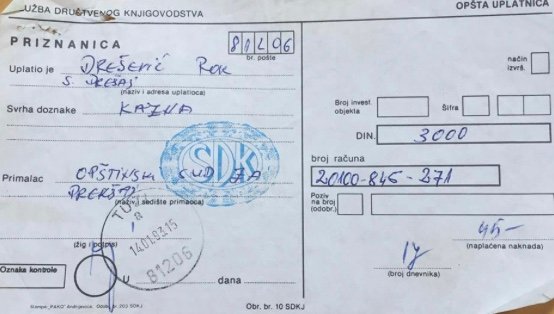 UŽBA DRUŠTVENOG KNJIGOVODSTVA
OPŠTA UPLATNICA
PRIZNANICA
81206
br. pošte
Uplatio je DREŠEVIĆ ROK
S. DREŠAJ
(naziv i adresa uplatioca)
Svrha doznake KAZNA
SDK
Primalac OPŠTINSKI SUD ZA
PREKRŠAJ
(naziv i sedište primaoca)
(žig i potpis)
TUZI
14.01.93.15
81206
Oznaka kontrole
U
dana
Štampa: "PAKO" Andrijevica. Odobr. br. 203 SDKJ
Obr. br. 10 SDKJ
način
izvrš.
Broj invest.
objekta
Šifra
DIN. 3000
broj računa
20100-845-271
Poziv
na broj
(odobr.)
17
(broj dnevnika)
45-
(naplaćena naknada)